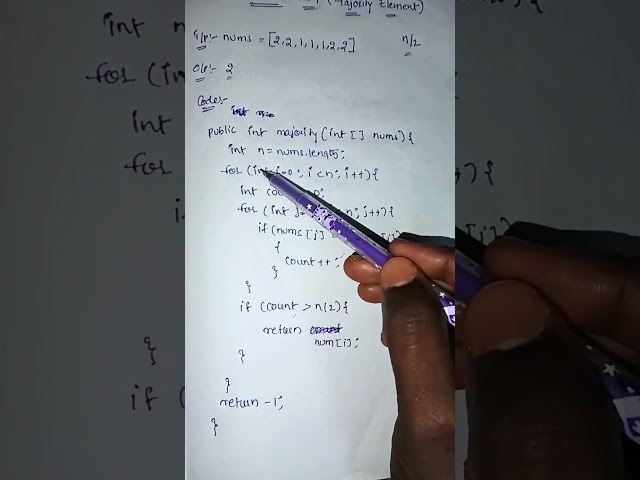 (Majority Element)
I/P:- nums = [2,2,1,1,1,2,2] n/2
O/P:- 2
Code:-
public int majority(int[] nums){
int n = nums.length;
for (int i=0; i<n; i++){
int
for (int n; j++){
if (nums[i]
{
count++;
}
}
if (count > n/2){
return
num[i];
}
}
return -1;
}